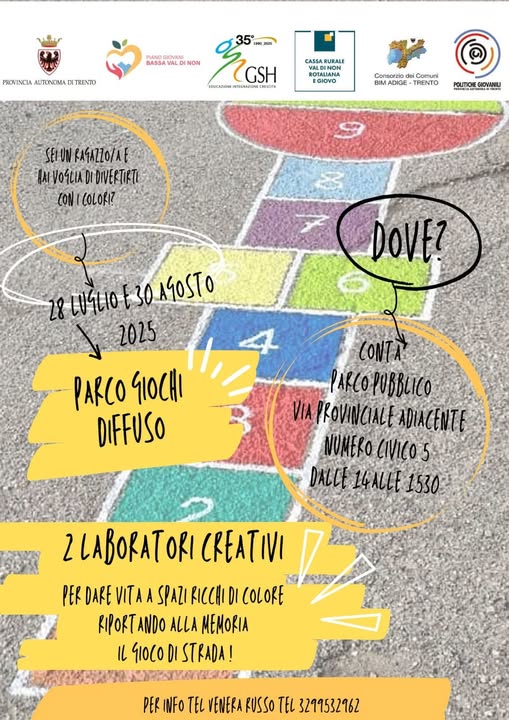 PROVINCIA AUTONOMA DI TRENTO
PIANO GIOVANI
BASSA VAL DI NON
35°
1990_2025
GSH
EDUCAZIONE INTEGRAZIONE CRESCITA
CASSA RURALE
VAL DI NON
ROTALIANA
E GIOVO
Consorzio dei Comuni
BIM ADIGE - TRENTO
POLITICHE GIOVANILI
PROVINCIA AUTONOMA DI TRENTO
SEI UN RAGAZZO/A E
HAI VOGLIA DI DIVERTIRTI
CON I COLORI?
9
8
7
DOVE?
6
28 LUGLIO E 30 AGOSTO
2025
4
PARCO GIOCHI
DIFFUSO
3
CONTA'
PARCO PUBBLICO
VIA PROVINCIALE ADIACENTE
NUMERO CIVICO 5
DALLE 14 ALLE 1530
2
2 LABORATORI CREATIVI
PER DARE VITA A SPAZI RICCHI DI COLORE
RIPORTANDO ALLA MEMORIA
IL GIOCO DI STRADA !
PER INFO TEL VENERA RUSSO TEL 3299532962